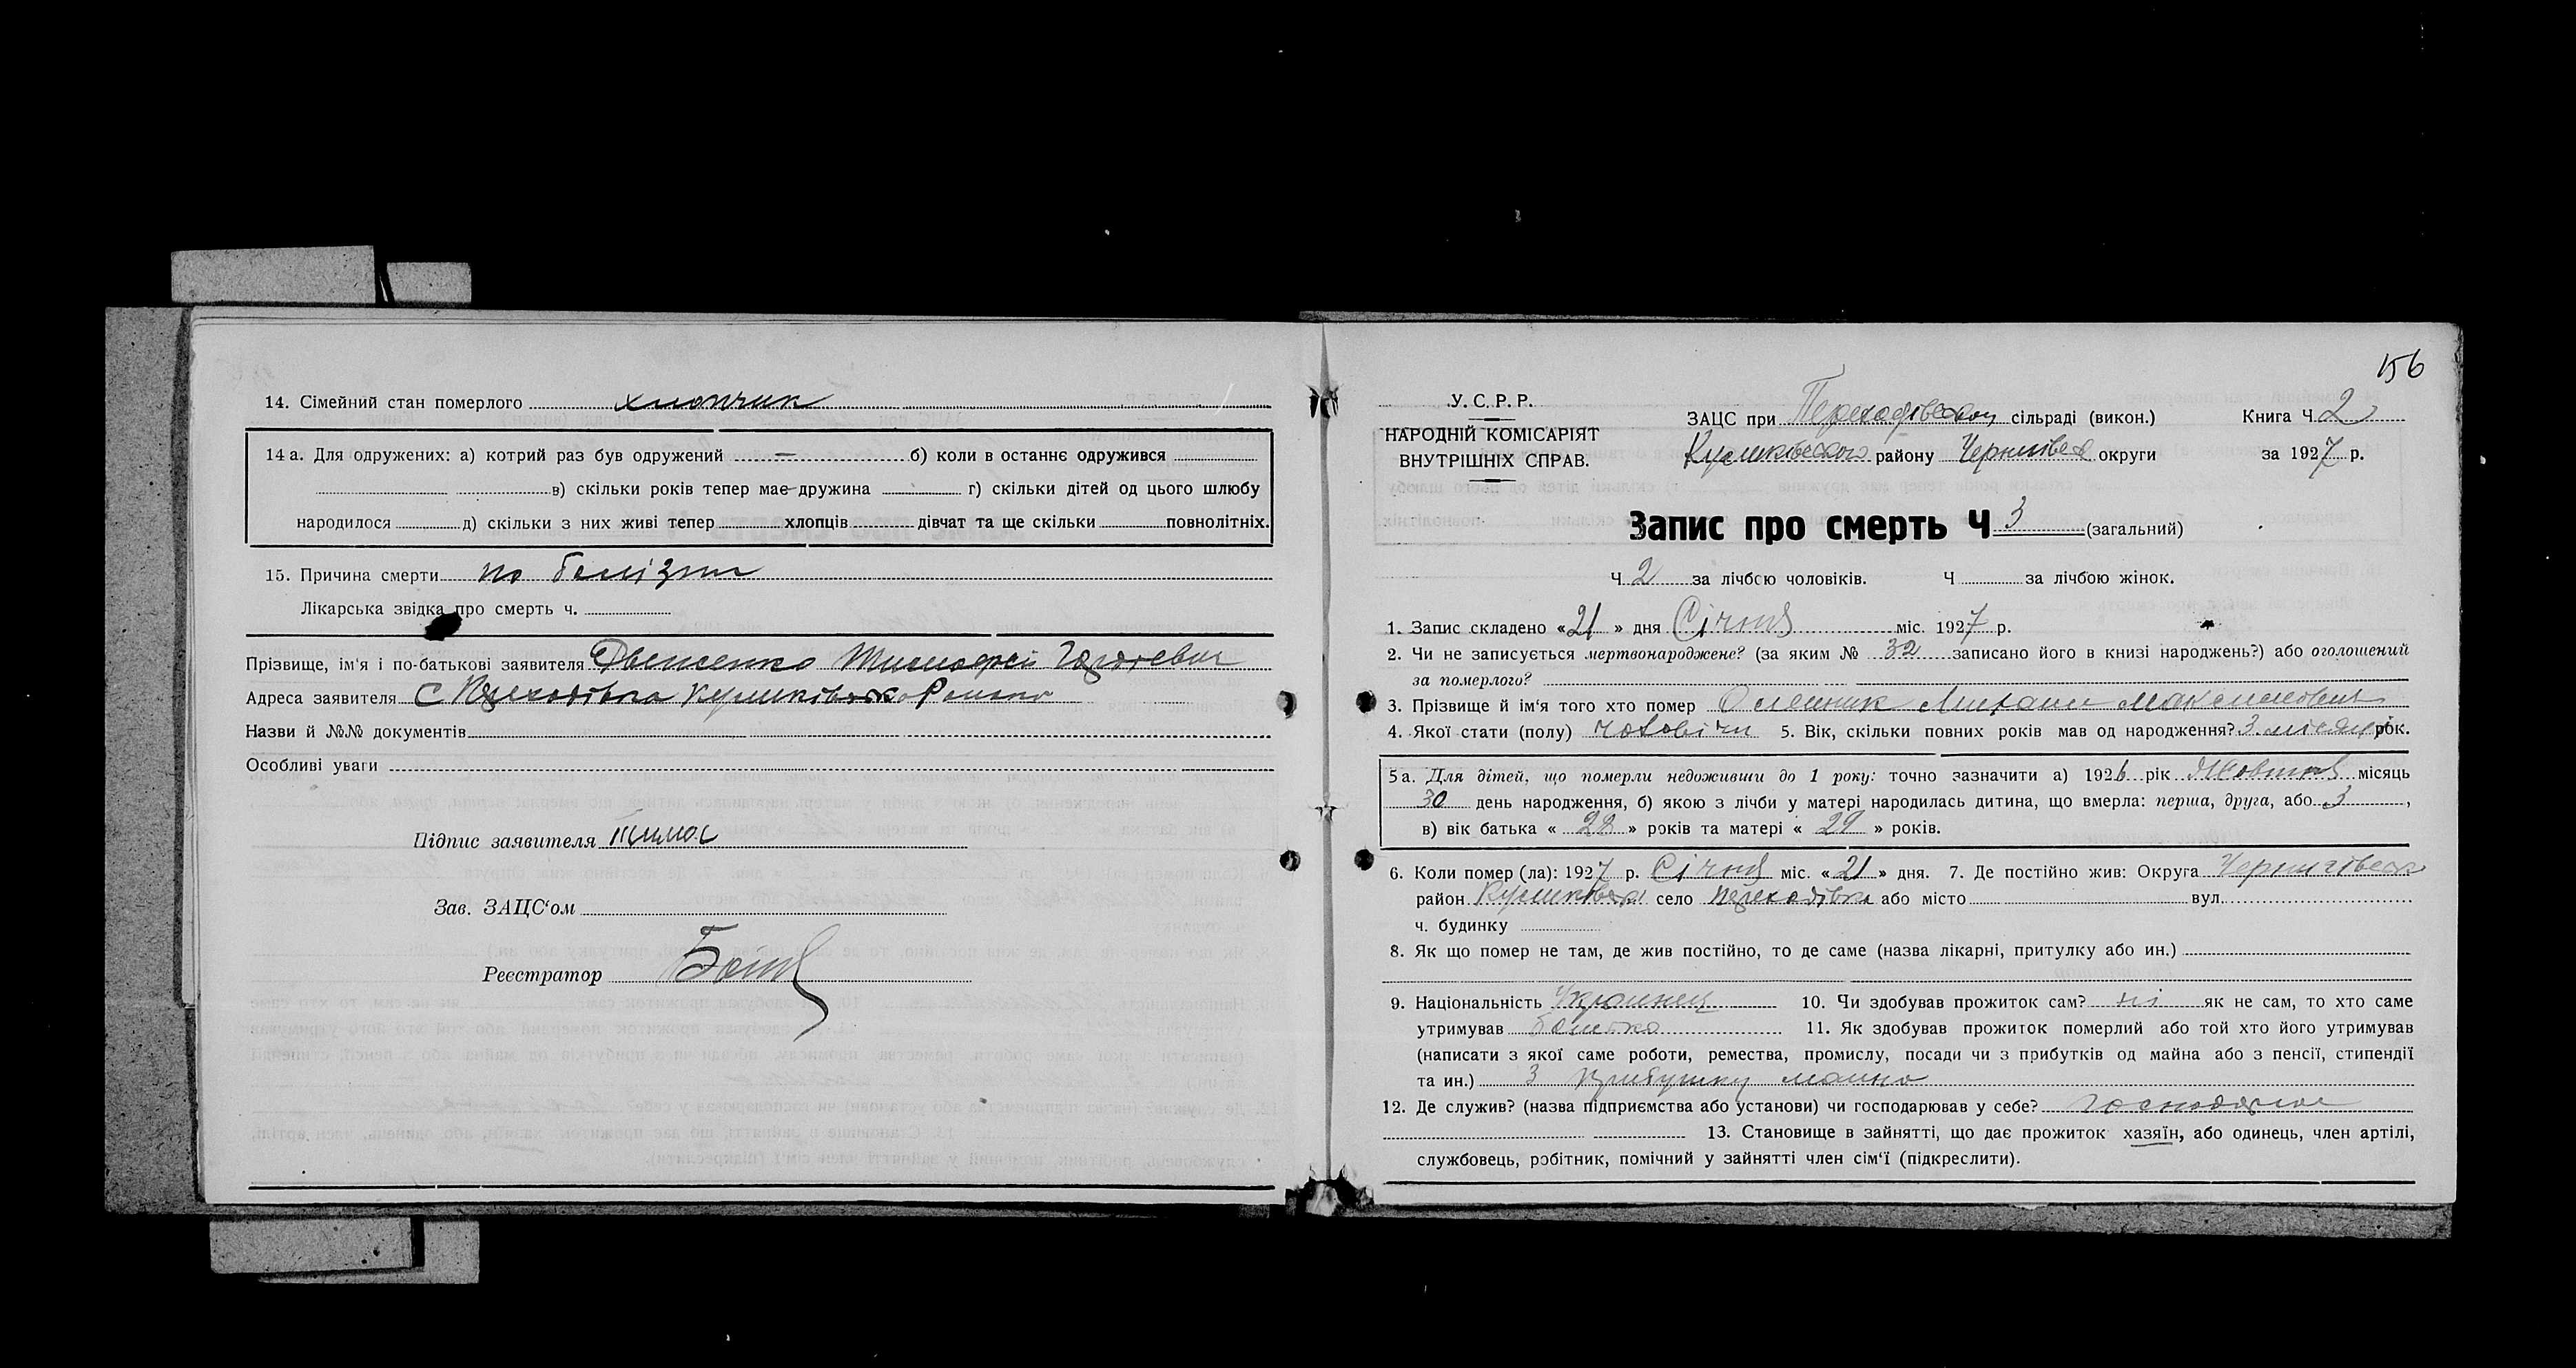 14. Сімейний стан померлого хлопчик
14 а. Для одружених: а) котрий раз був одружений — б) коли в останнє одружився
в) скільки років тепер має дружина г) скільки дітей од цього шлюбу
народилося д) скільки з них живі тепер хлопців дівчат та ще скільки повнолітніх.
15. Причина смерти по
Лікарська звідка про смерть ч.
Прізвище, ім'я і по-батькові заявителя
Адреса заявителя С Переходівка
Назви й №№ документів
Особливі уваги
Підпис заявителя
Зав. ЗАЦС'ом
Реєстратор
156
У. С. Р. Р.
НАРОДНІЙ КОМІСАРІЯТ
ВНУТРІШНІХ СПРАВ.
ЗАЦС при сільраді (викон.) Книга Ч. 2
району округи за 1927 р.
Запис про смерть Ч 3 (загальний)
Ч 2 за лічбою чоловіків. Ч за лічбою жінок.
1. Запис складено «21» дня Січня міс. 1927 р.
2. Чи не записується мертвонароджене? (за яким № 32 записано його в книзі народжень?) або оголошений
за померлого?
3. Прізвище й ім'я того хто помер
4. Якої стати (полу) 5. Вік, скільки повних років мав од народження? 3 рок.
5 а. Для дітей, що померли недоживши до 1 року: точно зазначити а) 1926 рік Жовтня місяць
30 день народження, б) якою з лічби у матері народилась дитина, що вмерла: перша, друга, або 3,
в) вік батька «28» років та матері «29» років.
6. Коли помер (ла): 1927 р. Січня міс. «21» дня. 7. Де постійно жив: Округа
район село Переходівка або місто вул.
ч. будинку
8. Як що помер не там, де жив постійно, то де саме (назва лікарні, притулку або ин.)
9. Національність 10. Чи здобував прожиток сам? ні як не сам, то хто саме
утримував батько 11. Як здобував прожиток померлий або той хто його утримував
(написати з якої саме роботи, ремества, промислу, посади чи з прибутків од майна або з пенсії, стипендії
та ин.) З
12. Де служив? (назва підприємства або установи) чи господарював у себе?
13. Становище в зайнятті, що дає прожиток хазяїн, або одинець, член артілі,
службовець, робітник, помічний у зайнятті член сім'ї (підкреслити).